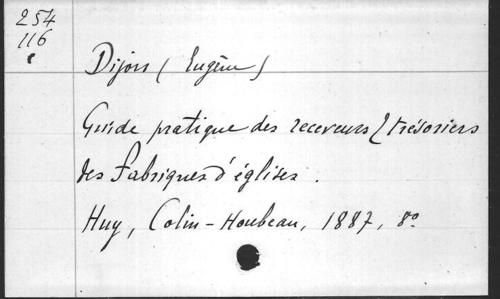 254
116
c
Dijon (Eugène)
Guide pratique des receveurs (trésoriers
des fabriques d'églises.
Huy, Colin-Houbeau, 1887, 8º